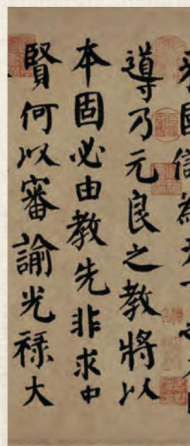 國儲為天下
導乃元良之教將以
本固必由教先非求
賢何以審諭光祿大